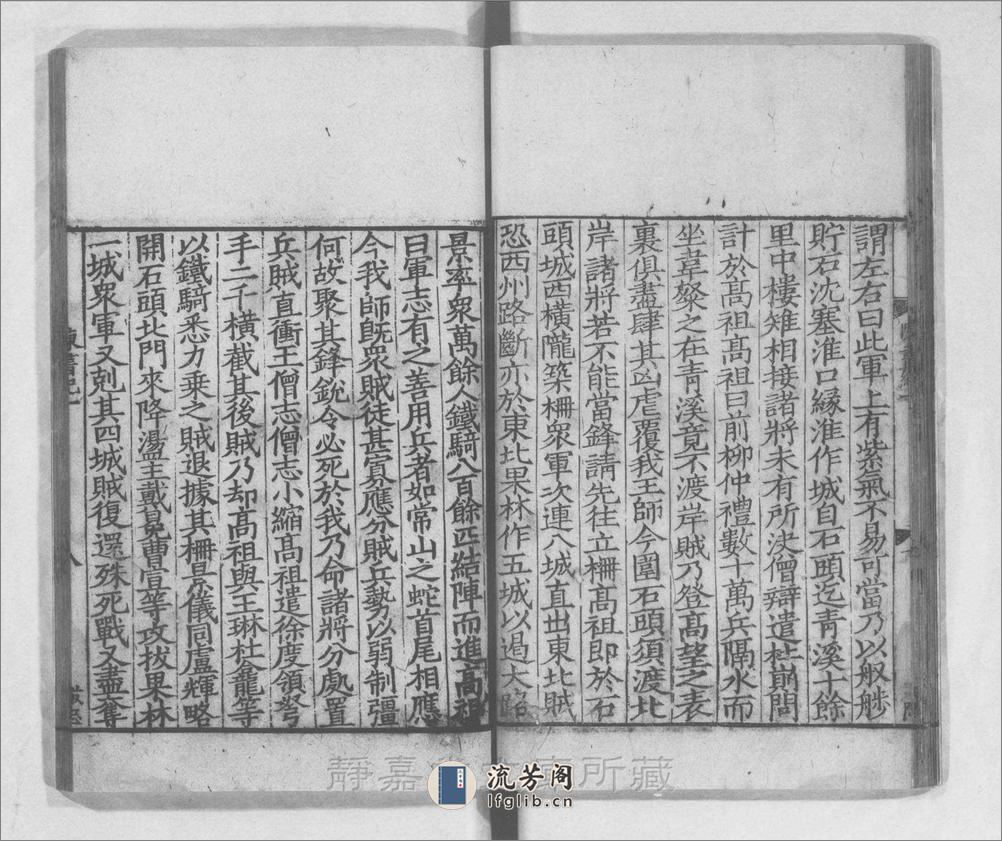 謂左右曰此軍上有紫氣不易可當乃以舣䑰
貯石沈塞淮口緣淮作城自石頭迄青溪十餘
里中樓雉相接諸將未有所決僧辯遣杜崱問
計於高祖高祖曰前柳仲禮數十萬兵隔水而
坐韋粲之在青溪竟不渡岸賊乃登高望之表
裏俱盡肆其凶虐覆我王師今圍石頭須渡北
岸諸將若不能當鋒請先往立柵高祖即於石
頭城西橫隴築柵衆軍次連八城直出東北賊
恐西州路斷亦於東北果林作五城以遏大路
景率衆萬餘人鐵騎八百餘匹結陣而進高祖
曰軍志有之善用兵者如常山之蛇首尾相應
今我師旣衆賊徒甚寡應分賊兵勢以弱制彊
何故聚其鋒銳令必死於我乃命諸將分處置
兵賊直衝王僧志僧志小縮高祖遣徐度領弩
手二千橫截其後賊乃却高祖與王琳杜龕等
以鐵騎悉力乗之賊退據其柵景儀同盧輝略
開石頭北門來降盪主戴冕曹宣等攻拔果林
一城衆軍又剋其四城賊復還殊死戰又盡奪
陳書紀一
八
靜嘉所藏
流芳阁
lfglib.cn